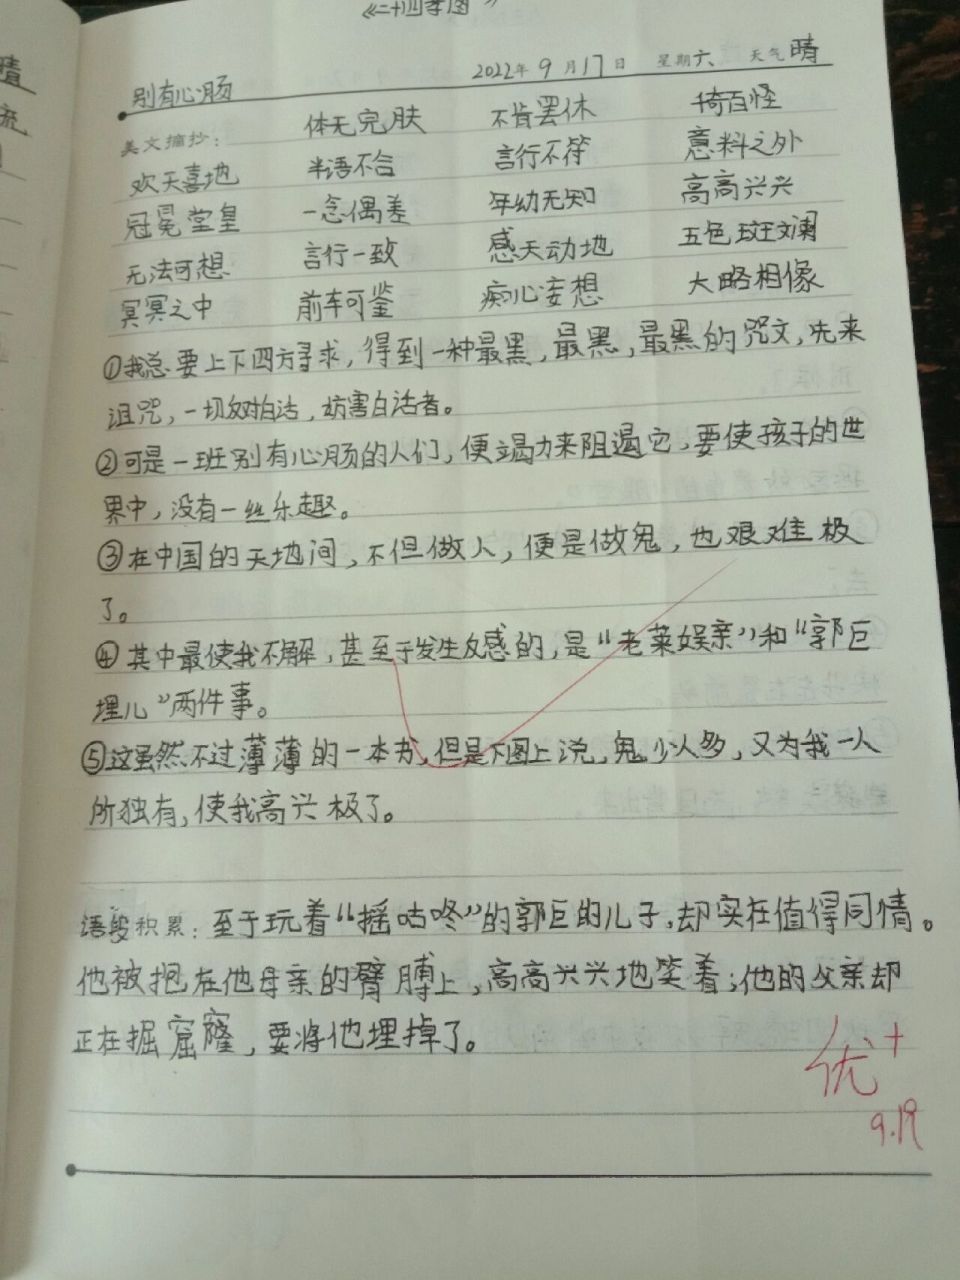 《二十四孝图》
别有心肠 2022年9月17日 星期六 天气晴
美文摘抄: 体无完肤 不肯罢休 掎百怪
欢天喜地 半语不合 言行不符 意料之外
冠冕堂皇 一念偶差 年幼无知 高高兴兴
无法可想 言行一致 感天动地 五色斑斓
冥冥之中 前车可鉴 痴心妄想 大略相像
①我总要上下四方寻求,得到一种最黑,最黑,最黑的咒文,先来
诅咒,一切反对白话,妨害白话者。
②可是一班别有心肠的人们,便竭力来阻遏它,要使孩子的世
界中,没有一丝乐趣。
③在中国的天地间,不但做人,便是做鬼,也艰难极
了。
④其中最使我不解,甚至于发生反感的,是“老莱娱亲”和“郭巨
埋儿”两件事。
⑤这虽然不过薄薄的一本书,但是下图上说,鬼少人多,又为我一人
所独有,使我高兴极了。
语段积累:至于玩着“摇咕咚”的郭巨的儿子,却实在值得同情。
他被抱在他母亲的臂膊上,高高兴兴地笑着;他的父亲却
正在掘窟窿,要将他埋掉了。
优+
9.19
晴